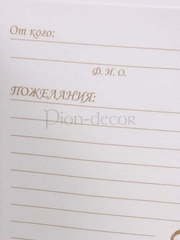 От кого:
Ф. И. О.
ПОЖЕЛАНИЯ:
Pion-decor